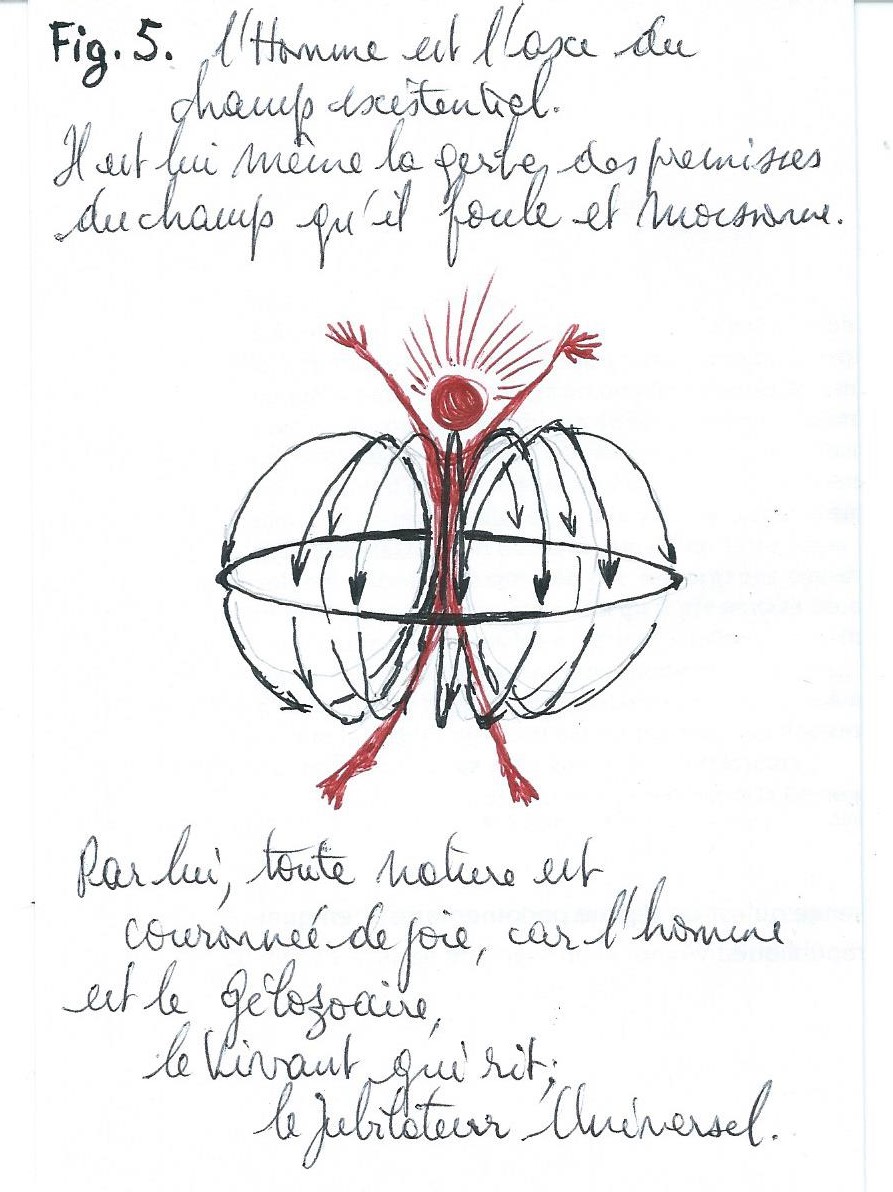 Fig. 5. l'Homme est l'axe du
champ existentiel.
Il est lui même la gerbe des premisses
du champ qu'il foule et moissonne.
Par lui, toute nature est
couronnée de joie, car l'homme
est le gélozoaire,
le Vivant qui rit;
le Jubilateur Universel.